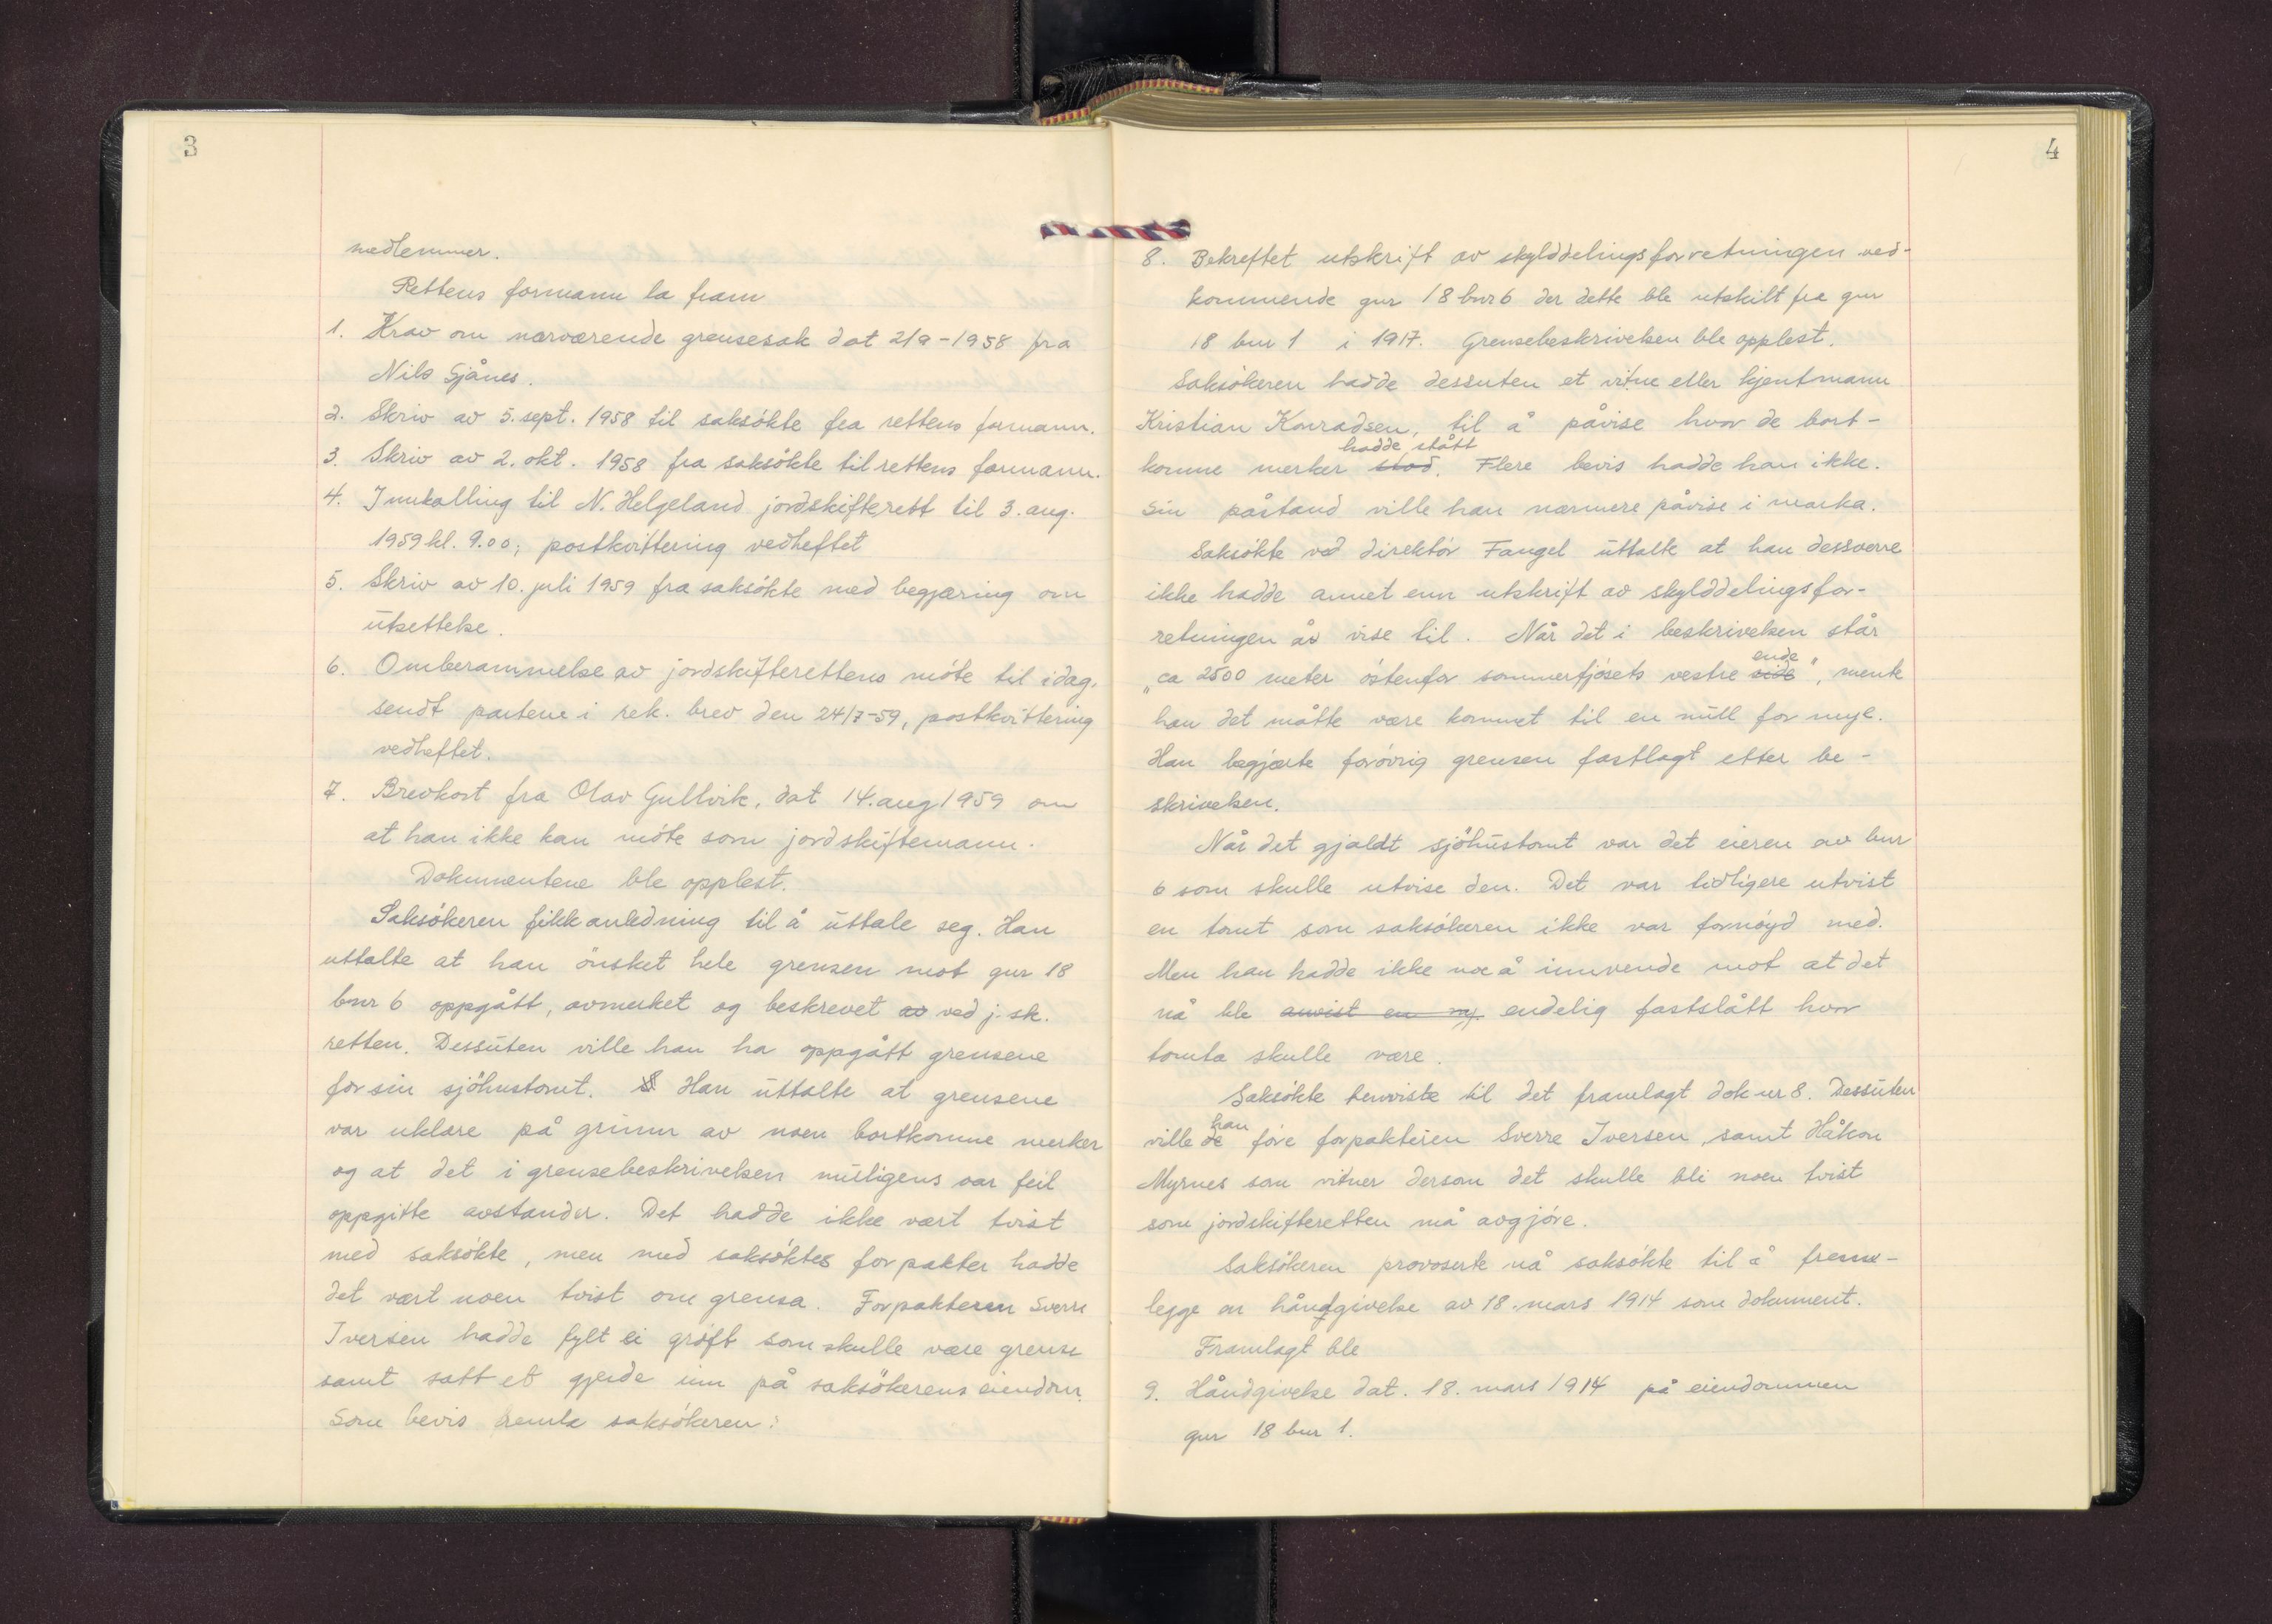 3
medlemmer.
Rettens formann la fram
1. Krav om nærværende grensesak dat 2/9-1958 fra
Nils Sjånes.
2. Skriv av 5. sept. 1958 til saksökte fra rettens formann.
3. Skriv av 2. okt. 1958 fra saksökte til rettens formann.
4. Innkalling til N. Helgeland jordskifterett til 3. aug.
1959 kl. 9.00, postkvittering vedheftet
5. Skriv av 10. juli 1959 fra saksökte med begjæring om
utsettelse.
6. Omberammelse av jordskifterettens möte til idag.
sendt partene i rek. brev den 24/7-59, postkvittering
vedheftet.
7. Brevkort fra Olav Gullvik, dat 14. aug 1959 om
at han ikke kan möte som jordskiftemann.
Dokumentene ble opplest.
Saksökeren fikk anledning til å uttale seg. Han
uttalte at han önsket hele grensen mot gnr 18
bnr 6 oppgått, avmerket og beskrevet av ved j.sk.
retten. Dessuten ville han ha oppgått grensene
for sin sjöhustomt. S Han uttalte at grensene
var uklare på grunn av noen bortkomne merker
og at det i grensebeskrivelsen muligens var feil
oppgitte avstander. Det hadde ikke vært tvist
med saksökte, men med saksöktes forpakter hadde
det vært noen tvist om grensa. Forpakteren Sverre
Iversen hadde fylt ei gröft som skulle være grense
samt satt et gjerde inn på saksökerens eiendom.
Som bevis fremla saksökeren:
4
8. Bekreftet utskrift av skylddelingsforretningen ved-
kommende gnr 18 bnr 6 der dette ble utskilt fra gnr
18 bnr 1 i 1917. Grensebeskrivelsen ble opplest.
Saksökeren hadde dessuten et vitne eller kjentmann
Kristian Konradsen, til å påvise hvor de bort-
hadde stått
komne merker stod. Flere bevis hadde han ikke.
Sin påstand ville han nærmere påvise i marka.
Saksökte ved direktör Fangel uttalte at han dessverre
ikke hadde annet enn utskrift av skylddelingsfor-
retningen å vise til. Når det i beskrivelsen står
ende
„ca 2500 meter östenfor sommerfjösets vestre side", mente
han det måtte være kommet til en null for mye.
Han begjærte forövrig grensen fastlagt etter be-
skrivelsen.
Når det gjaldt sjöhustomt var det eieren av bnr
6 som skulle utvise den. Det var tidligere utvist
en tomt som saksökeren ikke var fornöyd med.
Men han hadde ikke noe å innvende mot at det
nå ble anvist en ny. endelig fastslått hvor
tomta skulle være.
Saksökte henviste til det framlagt dok nr 8. Dessuten
han
ville de före forpakteren Sverre Iversen, samt Håkon
Myrnes som vitner dersom det skulle bli noen tvist
som jordskifteretten må avgjöre.
Saksökeren provoserte nå saksökte til å frem-
legge en håndgivelse av 18. mars 1914 som dokument.
Framlagt ble
9. Håndgivelse dat. 18. mars 1914 på eiendommen
gnr 18 bnr 1.